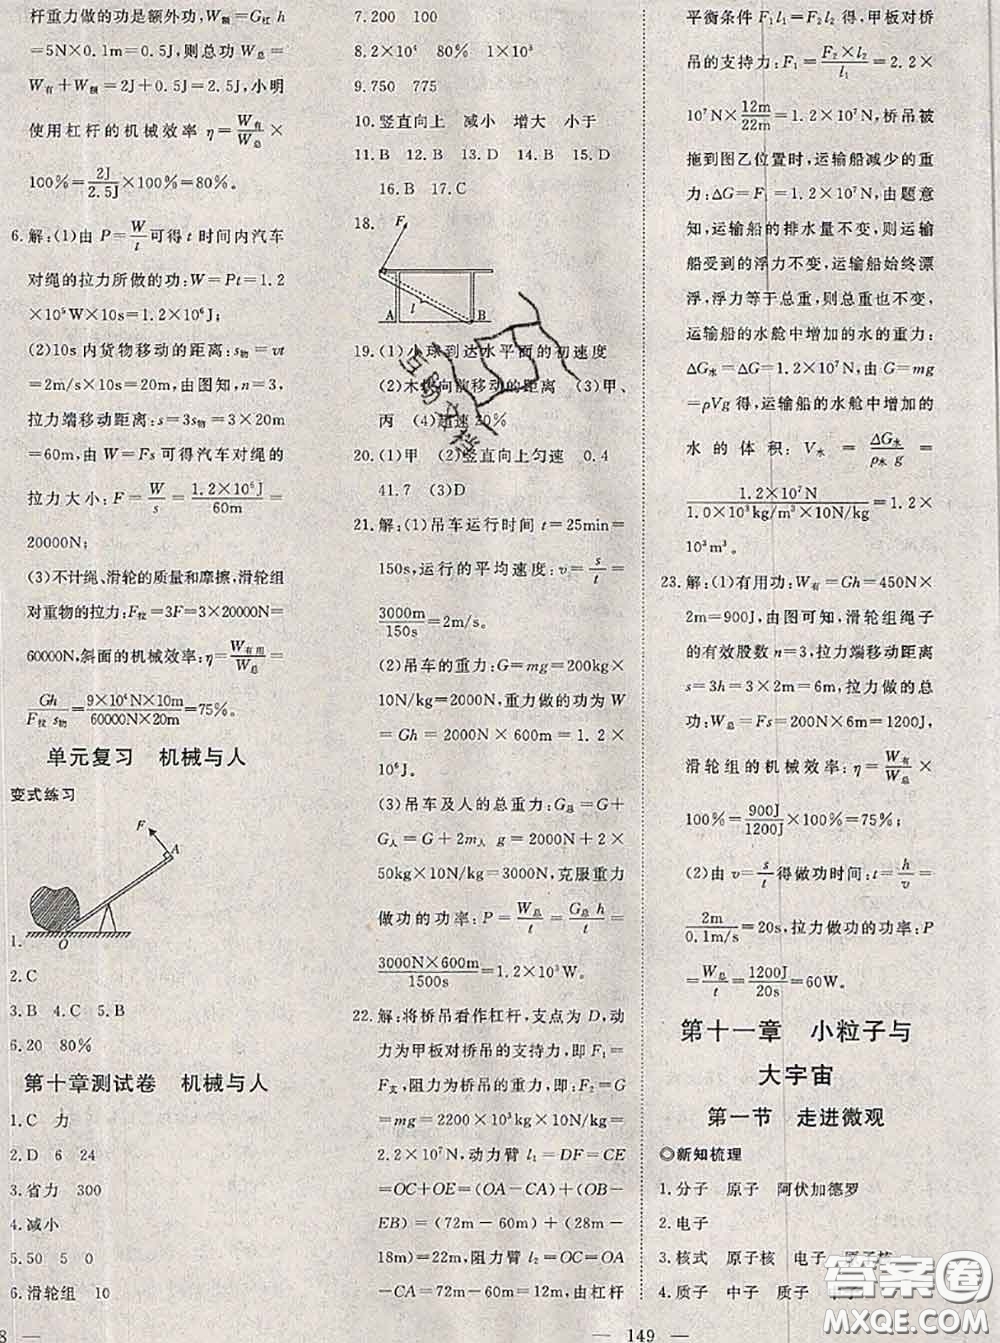 杆重力做的功是额外功,W额=G杠 h
=5N×0.1m=0.5J,则总功 W总=
W有+W额=2J+0.5J=2.5J,小明
使用杠杆的机械效率 η=W有/W总×
100%=2J/2.5J×100%=80%。
6.解:(1)由 P=W/t可得 t 时间内汽车
对绳的拉力所做的功:W=Pt=1.2
×10⁵W×10s=1.2×10⁶J;
(2)10s 内货物移动的距离:s物=vt
=2m/s×10s=20m,由图知,n=3,
拉力端移动距离:s=3s物=3×20m
=60m,由 W=Fs 可得汽车对绳的
拉力大小:F=W/s=1.2×10⁶J/60m=
20000N;
(3)不计绳、滑轮的质量和摩擦,滑轮组
对重物的拉力:F拉=3F=3×20000N=
60000N,斜面的机械效率:η=W有用/W总=
Gh/F拉 s物=9×10⁴N×10m/60000N×20m=75%。
单元复习 机械与人
变式练习
F
A
O
1.
2.C
3.B 4.C 5.B
6.20 80%
第十章测试卷 机械与人
1.C 力
2.D 6 24
3.省力 300
4.减小
5.50 5 0
6.滑轮组 10
8
7.200 100
8.2×10⁴ 80% 1×10³
9.750 775
10.竖直向上 减小 增大 小于
11.B 12.B 13.D 14.B 15.D
16.B 17.C
18.
F
l
A B
19.(1)小球到达水平面的初速度
(2)木块向前移动的距离 (3)甲、
丙 (4)超速20%
20.(1)甲 (2)竖直向上匀速 0.4
41.7 (3)D
21.解:(1)吊车运行时间 t=25min=
150s,运行的平均速度:v=s/t=
3000m/150s=2m/s。
(2)吊车的重力:G=mg=200kg×
10N/kg=2000N,重力做的功为 W
=Gh=2000N×600m=1.2×
10⁶J。
(3)吊车及人的总重力:G总=G+
G人=G+2m人 g=2000N+2×
50kg×10N/kg=3000N,克服重力
做功的功率:P=W总/t=G总 h/t=
3000N×600m/1500s=1.2×10³W。
22.解:将桥吊看作杠杆,支点为 D,动
力为甲板对桥吊的支持力,即 F₁=
F支,阻力为桥吊的重力,即:F₂=G
=mg=2200×10³kg×10N/kg=
2.2×10⁷N,动力臂 l₁=DF=CE
=OC+OE=(OA-CA)+(OB-
EB)=(72m-60m)+(28m-
18m)=22m,阻力臂 l₂=OC=OA
-CA=72m-60m=12m,由杠杆
149
平衡条件 F₁l₁=F₂l₂ 得,甲板对桥
吊的支持力:F₁=F₂×l₂/l₁=2.2×
10⁷N×12m/22m=1.2×10⁷N,桥吊被
拖到图乙位置时,运输船减少的重
力:ΔG=F₁=1.2×10⁷N,由题意
知,运输船的排水量不变,则运输
船受到的浮力不变,运输船始终漂
浮,浮力等于总重,则总重也不变,
运输船的水舱中增加的水的重力:
ΔG水=ΔG=1.2×10⁷N,由 G=mg
=ρVg 得,运输船的水舱中增加的
水的体积:V水=ΔG水/ρ水 g=
1.2×10⁷N/1.0×10³kg/m³×10N/kg=1.2×
10³m³。
23.解:(1)有用功:W有=Gh=450N×
2m=900J,由图可知,滑轮组绳子
的有效股数 n=3,拉力端移动距离
s=3h=3×2m=6m,拉力做的总
功:W总=Fs=200N×6m=1200J,
滑轮组的机械效率:η=W有/W总×
100%=900J/1200J×100%=75%;
(2)由 v=s/t得做功时间:t=h/v=
2m/0.1m/s=20s,拉力做功的功率:P
=W总/t=1200J/20s=60W。
第十一章 小粒子与
大宇宙
第一节 走进微观
◎新知梳理
1.分子 原子 阿伏加德罗
2.电子
3.核式 原子核 电子 原子核
4.质子 中子 质子
答案圈
MXQE.COM